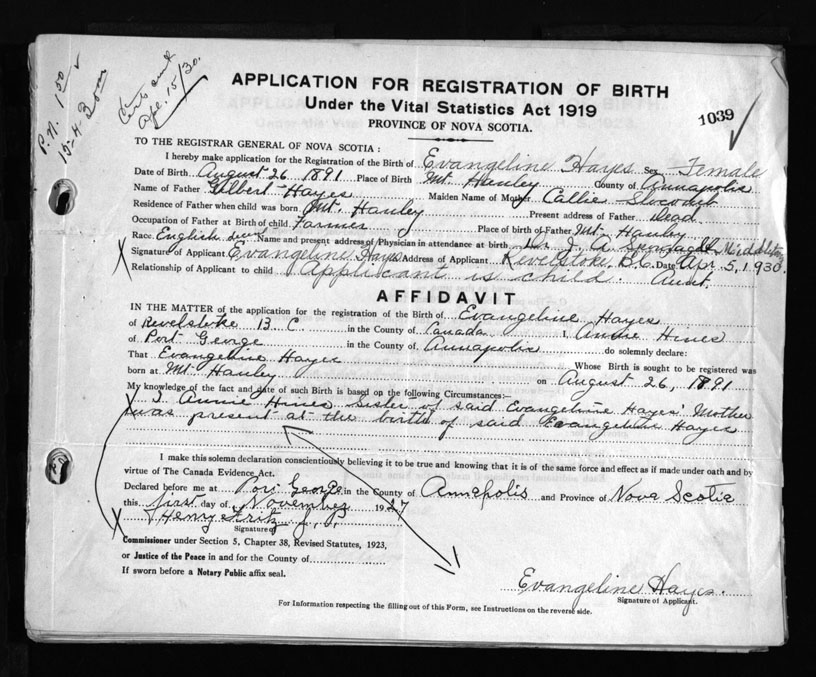 P.N. 1.50
15-4-30
Cert. sent
Apl. 15/30.
APPLICATION FOR REGISTRATION OF BIRTH
Under the Vital Statistics Act 1919
PROVINCE OF NOVA SCOTIA.
1039
TO THE REGISTRAR GENERAL OF NOVA SCOTIA:
I hereby make application for the Registration of the Birth of Evangeline Hayes Sex Female
Date of Birth August 26 1891 Place of Birth Mt. Hanley County of Annapolis
Name of Father Gilbert Hayes Maiden Name of Mother Callie Slocomb
Residence of Father when child was born Mt. Hanley Present address of Father Dead
Occupation of Father at Birth of child Farmer Place of birth of Father Mt. Hanley
Race English Name and present address of Physician in attendance at birth Dr. J. A. Middleton
Signature of Applicant Evangeline Hayes Address of Applicant Revelstoke, B.C. Date Apr. 5, 1930.
Relationship of Applicant to child Applicant is child. Aunt.
AFFIDAVIT
IN THE MATTER of the application for the registration of the Birth of Evangeline Hayes
of Revelstoke B C in the County of Canada I, Annie Hines
of Port George in the County of Annapolis do solemnly declare:
That Evangeline Hayes Whose Birth is sought to be registered was
born at Mt Hanley on August 26, 1891
My knowledge of the fact and date of such Birth is based op the following Circumstances:-
I Annie Hines Sister of said Evangeline Hayes' Mother
was present at the birth of said Evangeline Hayes
I make this solemn declaration conscientiously believing it to be true and knowing that it is of the same force and effect as if made under oath and by
virtue of The Canada Evidence Act.
Declared before me at Port George in the County of Annapolis and Province of Nova Scotia
this first day of November 1927
Henry Fritz J. P.
Signature of
Commissioner under Section 5, Chapter 38, Revised Statutes, 1923,
or Justice of the Peace in and for the County of
If sworn before a Notary Public affix seal.
Evangeline Hayes.
Signature of Applicant.
For Information respecting the filling out of this Form, see Instructions on the reverse side.